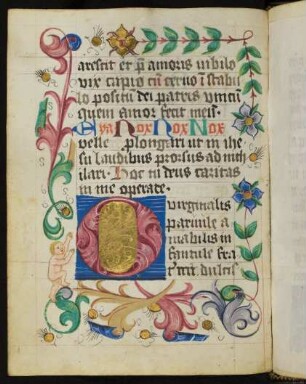 arescit et p̄ amoris iubilo
vix capio cū cerno ī stabu
lo positū dei patris vnicū
quem amor fecit meis
Nox Nox Nox
velle plongari vt in ihe
su laudibus prorsus ad nichi
lari. Hoc in deus caritas
in me operade.
O virginalis
paruule a
mabilis in
fantule fra
dulcis